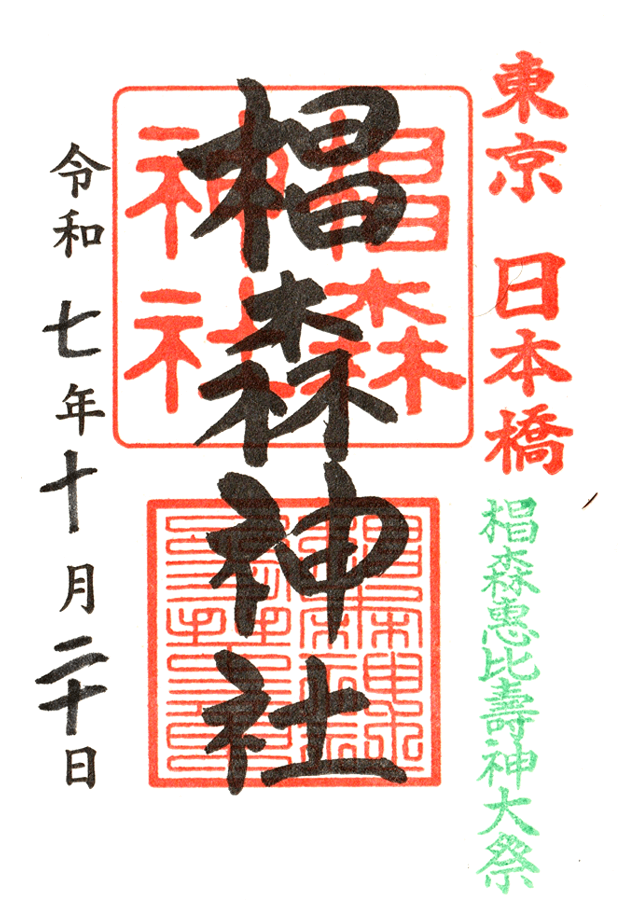 東京 日本橋
椙森惠比壽神大祭
椙森神社
椙森
神社
令和七年十月二十日